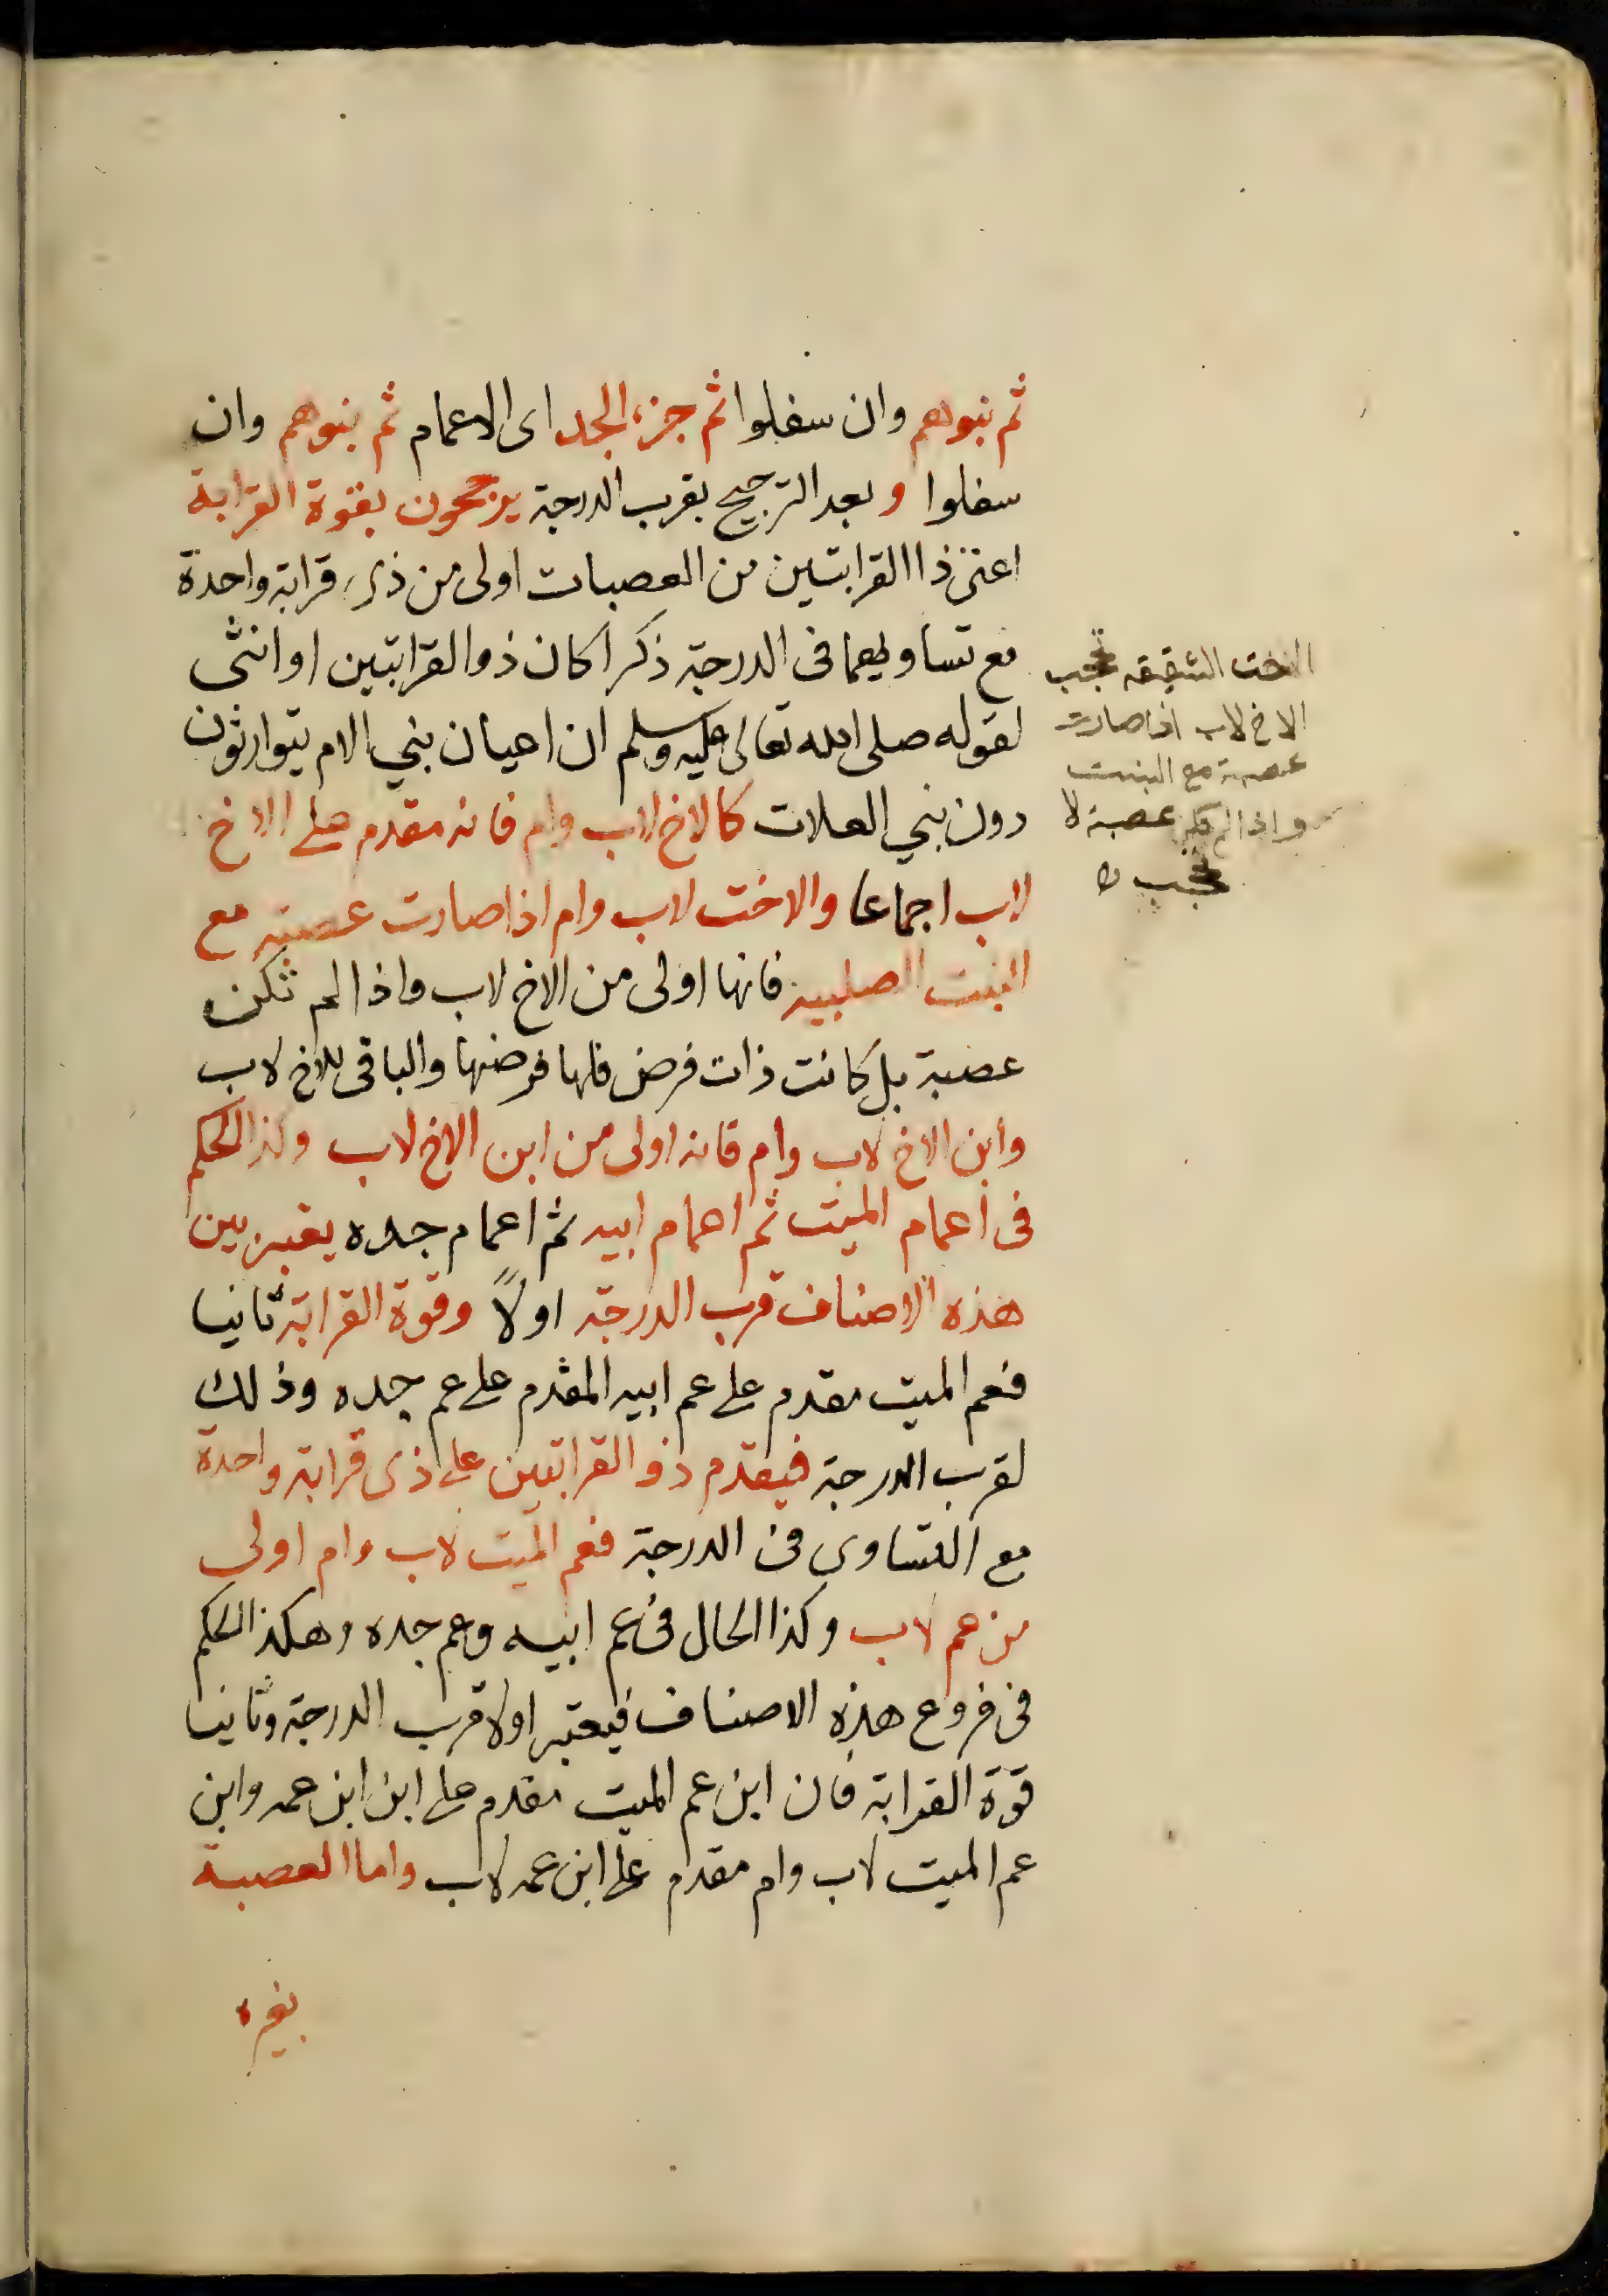 ثم بنوهم وان سفلوا ثم جزء الجد اى الاعمام ثم بنوهم وان
سفلوا و بعد الترجيح بقرب الدرجة يرجحون بقوة القرابة
اعنى ذا القرابتين من العصبات اولى من ذى قرابة واحدة
مع تساويهما فى الدرجة ذكرا كان ذو القرابتين او انثى
لقوله صلى الله تعالى عليه وسلم ان اعيان بني الام يتوارثون
دون بني العلات كالاخ لاب وام فانه مقدم على الاخ
لاب اجماعا والاخت لاب وام اذا صارت عصبة مع
البنت الصلبية فانها اولى من الاخ لاب واذا لم تكن
عصبة بل كانت ذات فرض فلها فرضها والباقى للاخ لاب
وابن الاخ لاب وام فانه اولى من ابن الاخ لاب وكذا الحكم
فى اعمام الميت ثم اعمام ابيه ثم اعمام جده يعتبر بين
هذه الاصناف قرب الدرجة اولاً وقوة القرابة ثانيا
فعم الميت مقدم على عم ابيه المقدم على عم جده وذلك
لقرب الدرجة فيقدم ذو القرابتين على ذى قرابة واحدة
مع التساوى فى الدرجة فعم الميت لاب وام اولى
من عم لاب وكذا الحال فى عم ابيه وعم جده وهكذا الحكم
فى فروع هذه الاصناف فيعتبر اولا قرب الدرجة وثانيا
قوة القرابة فان ابن عم الميت مقدم على ابن ابن عمه وابن
عم الميت لاب وام مقدم على ابن عمه لاب واما العصبة
بغيره
الاخت الشقيقه تحجب
الاخ لاب اذا صارت
عصبة مع البنت
واذا لم تكن عصبة لا
تحجب